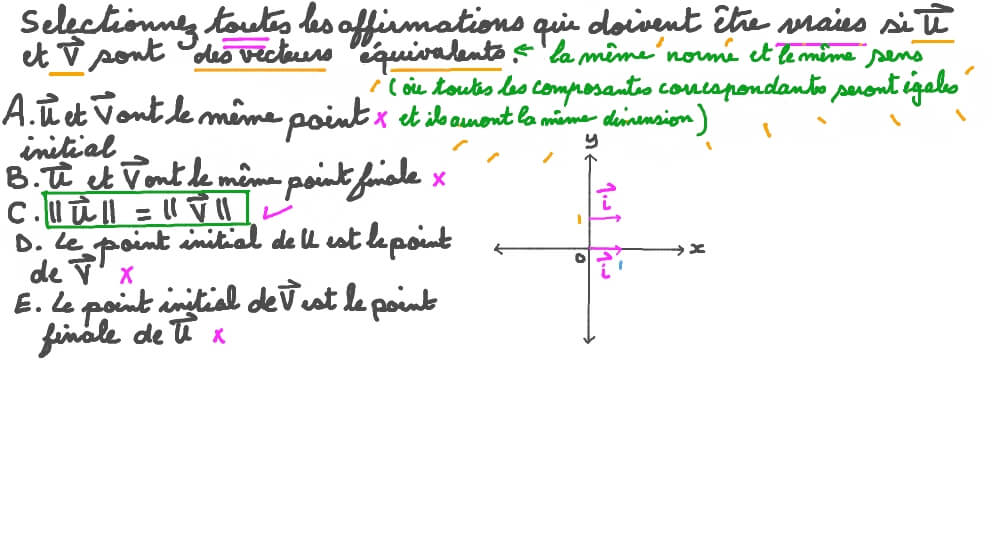 Selectionnez toutes les affirmations qui doivent être vraies si u⃗
et v⃗ sont des vecteurs équivalents. ← la même norme et le même sens
(où toutes les composantes correspondants seront égales
A. u⃗ et v⃗ ont le même point x et ils auront la même dimension)
initial
B. u⃗ et v⃗ ont le même point finale x
C. ‖u⃗‖ = ‖v⃗‖ ✓
D. Le point initial de u est le point
de v⃗ x
E. Le point initial de v⃗ est le point
finale de u⃗ x
y
i⃗
1
x
0
i⃗ 1